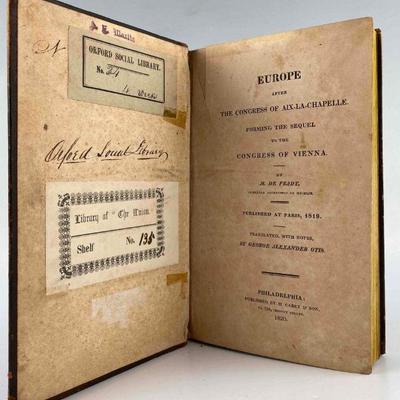 OXFORD SOCIAL LIBRARY.
No. 24
4 Weeks
Oxford Social Library
Library of "The Union.
Shelf No. 135
EUROPE
AFTER
THE CONGRESS OF AIX-LA-CHAPELLE.
FORMING THE SEQUEL
TO THE
CONGRESS OF VIENNA.
BY
M. DE PRADT,
PUBLISHED AT PARIS, 1819.
TRANSLATED, WITH NOTES,
BY GEORGE ALEXANDER OTIS.
PHILADELPHIA:
PUBLISHED BY M. CAREY & SON,
1820.